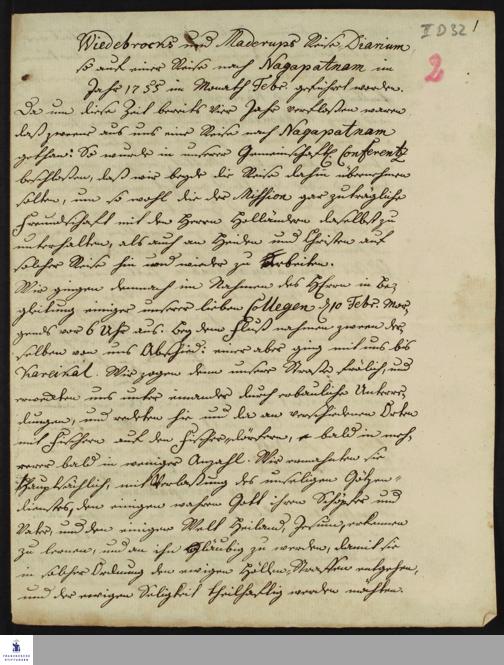 II D 32 1
2
Wiedebrocks und Maderups Reise Diarium
so auf einer Reise nach Nagapatnam im
Jahr 1755 im Monath Febr. geführt worden.
Da um diese Zeit bereits vier Jahr verfloßen waren
daß zweene aus uns eine Reise nach Nagapatnam
gethan: So wurde in unserer Gemeinschaftl. Conferentz
beschloßen, daß wir beyde die Reise dahin übernehmen
solten, um so wohl die der Mission gar zuträgliche
Freundschaft mit den Herrn Holländern daselbst zu
unterhalten, als auch an Heiden und Christen auf
solcher Reise hin und wieder zu arbeiten.
Wir gingen demnach im Nahmen des HErrn in Be-
gleitung einiger unserer lieben Collegen d. 10 Febr. Mor-
gends vor 6 Uhr aus. Bey dem Fluß nahmen zween der-
selben von uns Abschied: einer aber ging mit uns bis
Kareikal. Wir zogen denn unsere Straße frölich, und
ermunterten uns unter einander durch erbauliche Unterre-
dungen, und redeten hie und da an verschiedenen Orten
mit Fischern auf den Fischer-dörfern, bald in meh-
rerer bald in weniger Anzahl. Wir ermahneten sie
hauptsächlich, mit Verlaßung des unseligen Götzen-
dienstes, den einigen wahren Gott ihren Schöpfer und
Vater, und den einigen Welt Heiland, Jesum, erkennen
zu lernen, und an ihn gläubig zu werden, damit sie
in solcher Ordnung den ewigen Höllen-Straffen entgehen,
und der ewigen Seligkeit theilhaftig werden möchten.
FRANCKESCHE
STIFTUNGEN